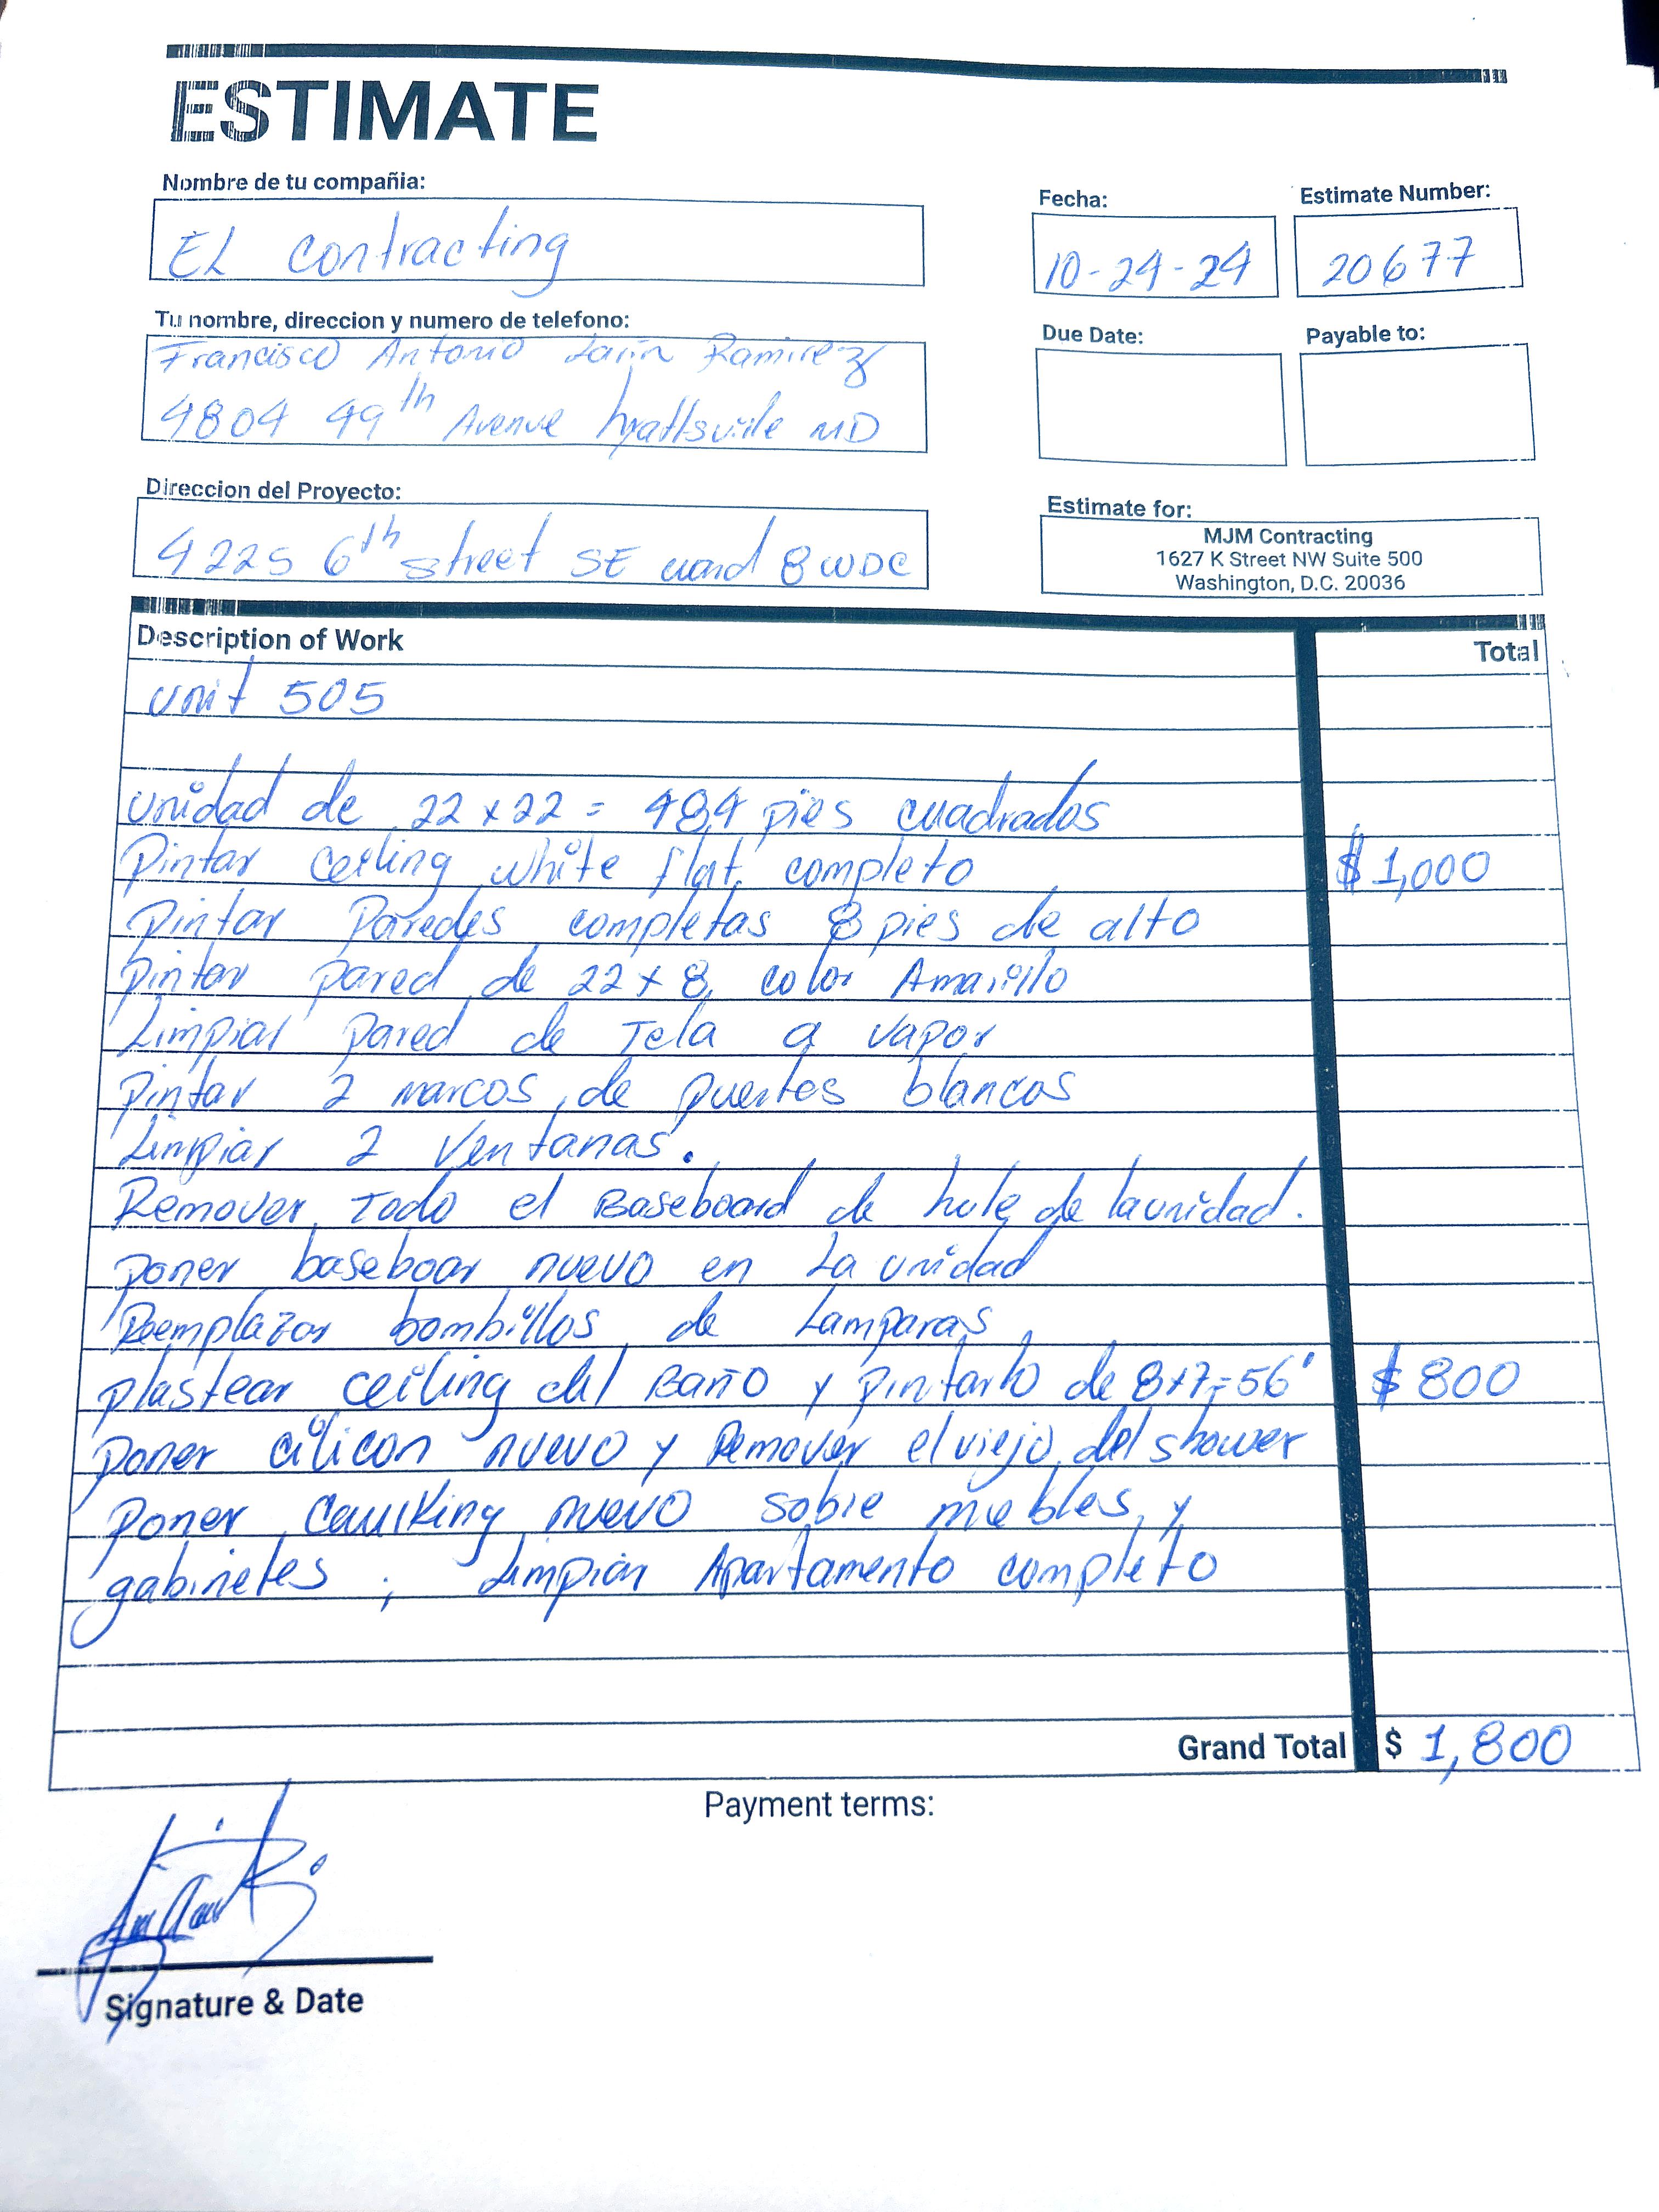 ESTIMATE
Nombre de tu compañia:
EL contracting
Fecha:
10-24-24
Estimate Number:
20677
Tu nombre, direccion y numero de telefono:
Francisco Antonio Larin Ramirez
4804 49th Avenue hyattsville MD
Due Date:
Payable to:
Direccion del Proyecto:
4225 6th street SE ward 8 WDC
Estimate for:
MJM Contracting
1627 K Street NW Suite 500
Washington, D.C. 20036
Description of Work
Total
unit 505
unidad de 22 x 22 = 484 pies cuadrados
Pintar ceiling white flat. completo $ 1,000
Pintar Paredes completas 8 pies de alto
Pintar pared de 22 x 8 color Amarillo
Limpiar pared de Tela a vapor
Pintar 2 marcos de puertes blancos
Limpiar 2 Ventanas.
Remover Todo el Baseboard de hule de la unidad.
poner baseboar nuevo en La unidad
Reemplazar bombillos de Lamparas
plastear ceiling del Baño y pintarlo de 8x7=56' $ 800
poner cilicon nuevo y Remover el viejo del shower
poner caulking nuevo sobre muebles y
gabinetes ; Limpiar Apartamento completo
Grand Total $ 1,800
Payment terms:
Signature & Date